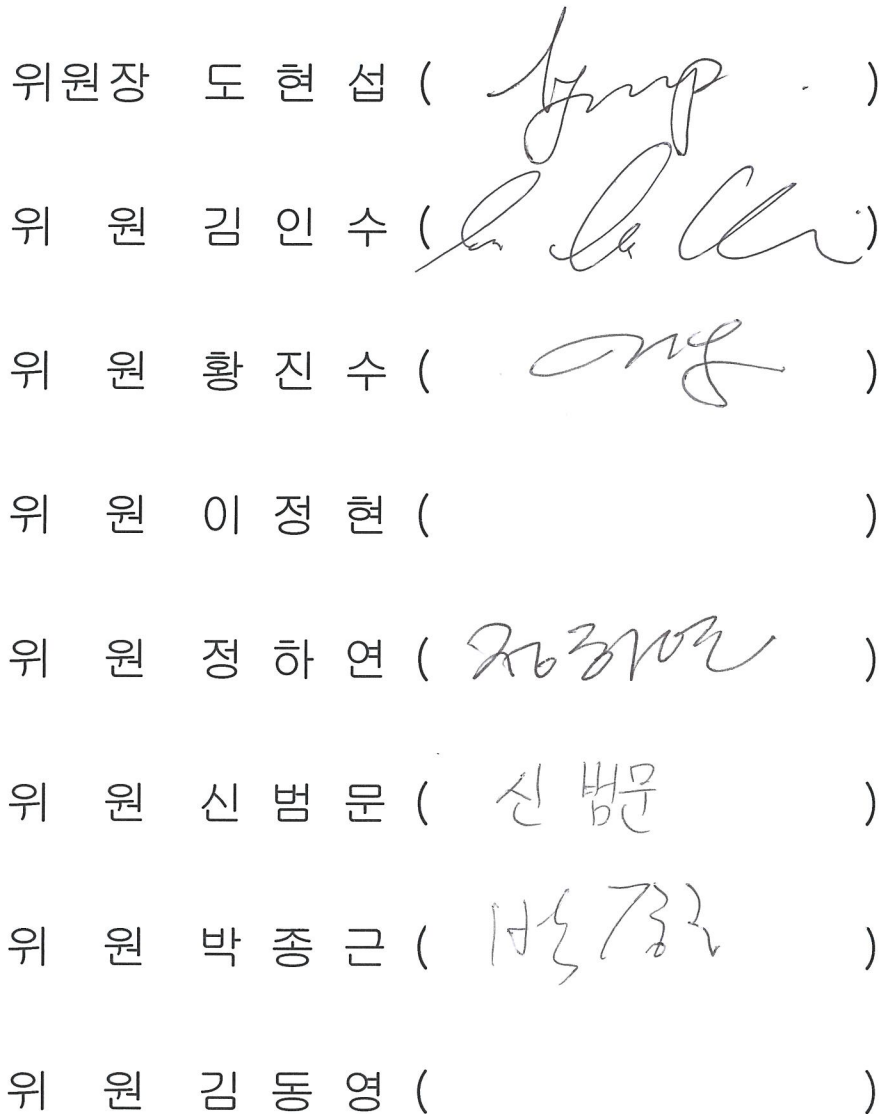 위원장 도 현 섭 ( )
위 원 김 인 수 ( )
위 원 황 진 수 ( )
위 원 이 정 현 ( )
위 원 정 하 연 ( 정하연 )
위 원 신 범 문 ( 신 범문 )
위 원 박 종 근 ( 박 종근 )
위 원 김 동 영 ( )